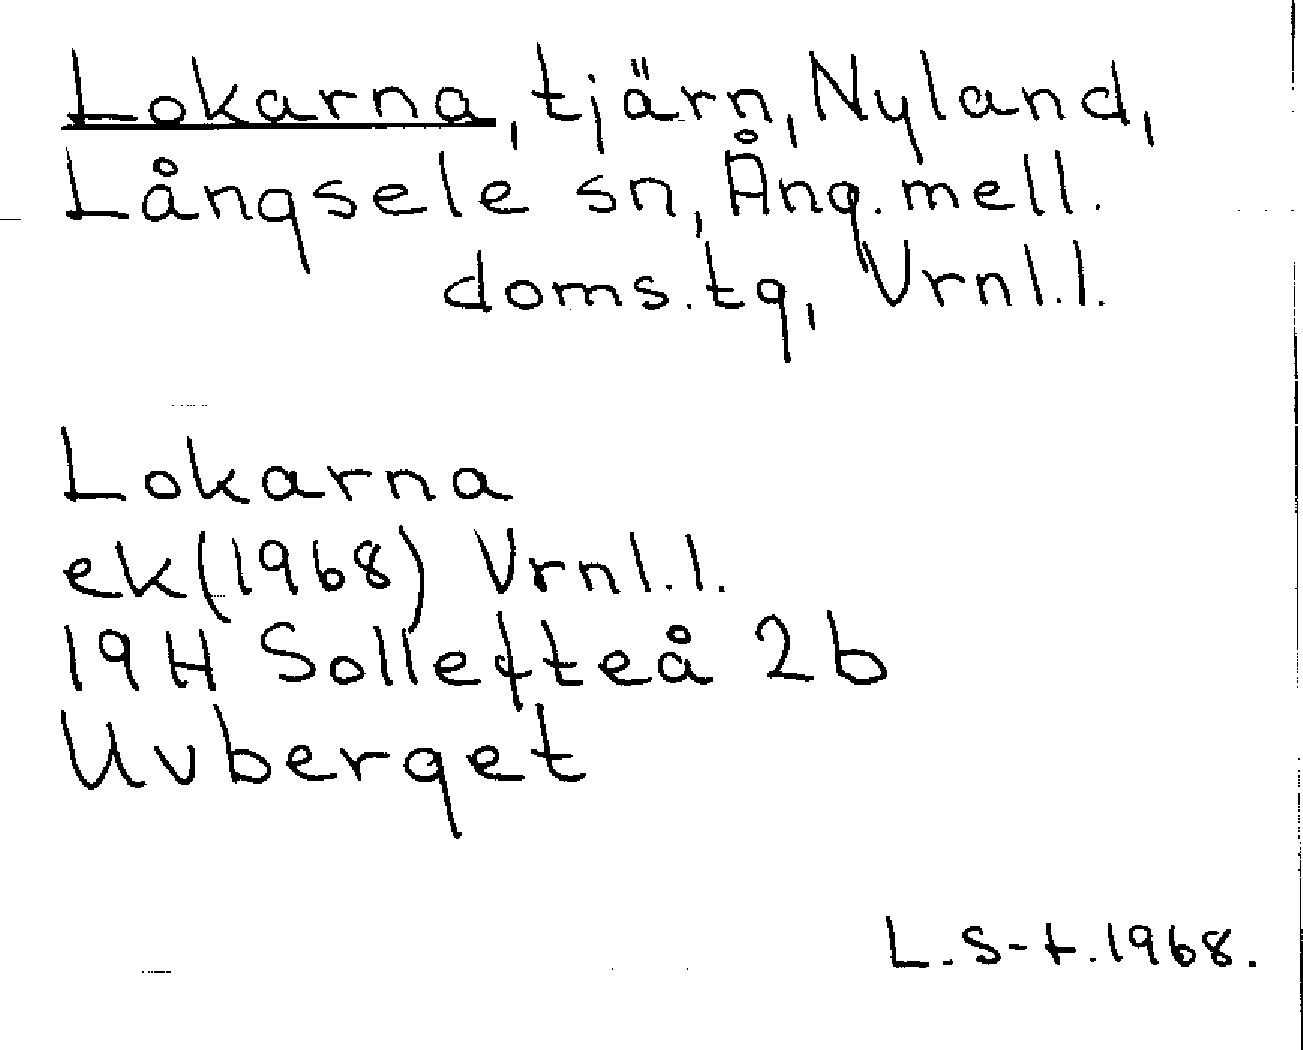 Lokarna, tjärn, Nyland,
Långsele sn, Ång. mell.
doms. tg, Vrnl.l.
Lokarna
ek (1968) Vrnl.l.
19H Sollefteå 2b
Uvberget
L.S-t.1968.